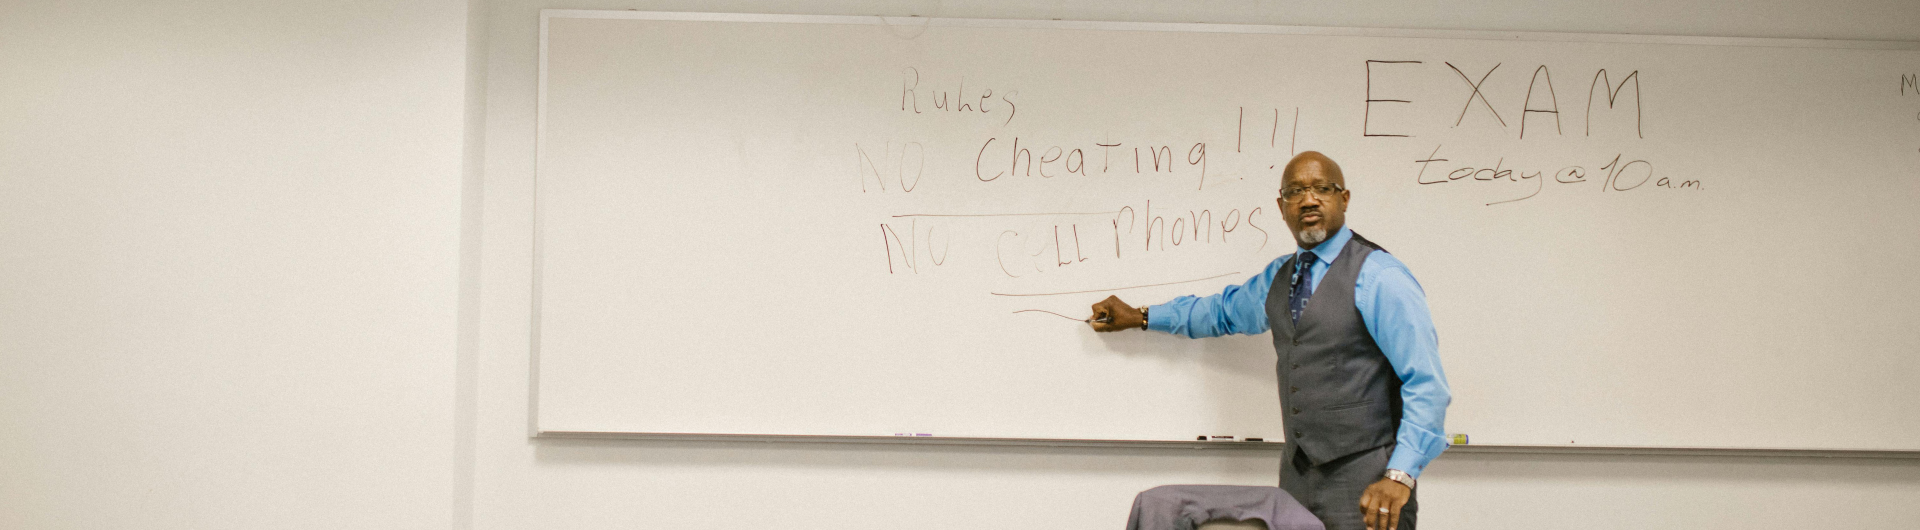 Rules
NO Cheating!!!
NO Cell Phones
EXAM
today @ 10 a.m.